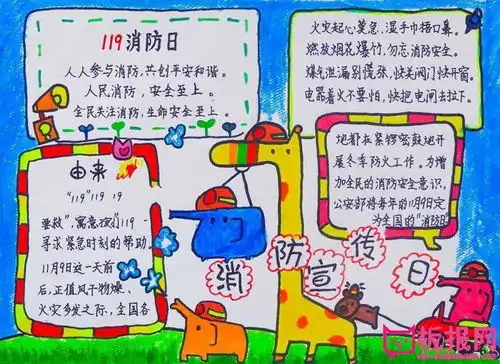 119消防日
人人参与消防，共创平安和谐。
人民消防，安全至上。
全民关注消防，生命安全至上。
火灾起心莫急，湿手巾捂口鼻。
燃放烟花爆竹，勿忘消防安全。
爆气泄漏别慌张，快关阀门快开窗。
电器着火不要怕，快把电闸去拉下。
由来
"119""119 19
垂救"，寓意拨打119-
寻求紧急时刻的帮助。
11月9日这一天前
后，正值风干物燥、
火灾多发之际，全国各
地都在紧锣密鼓地开
展冬季防火工作。为增
加全民的消防安全意识，
公安部将每年的11月9日定
为全国的"消防日
消防宣传日
板报网